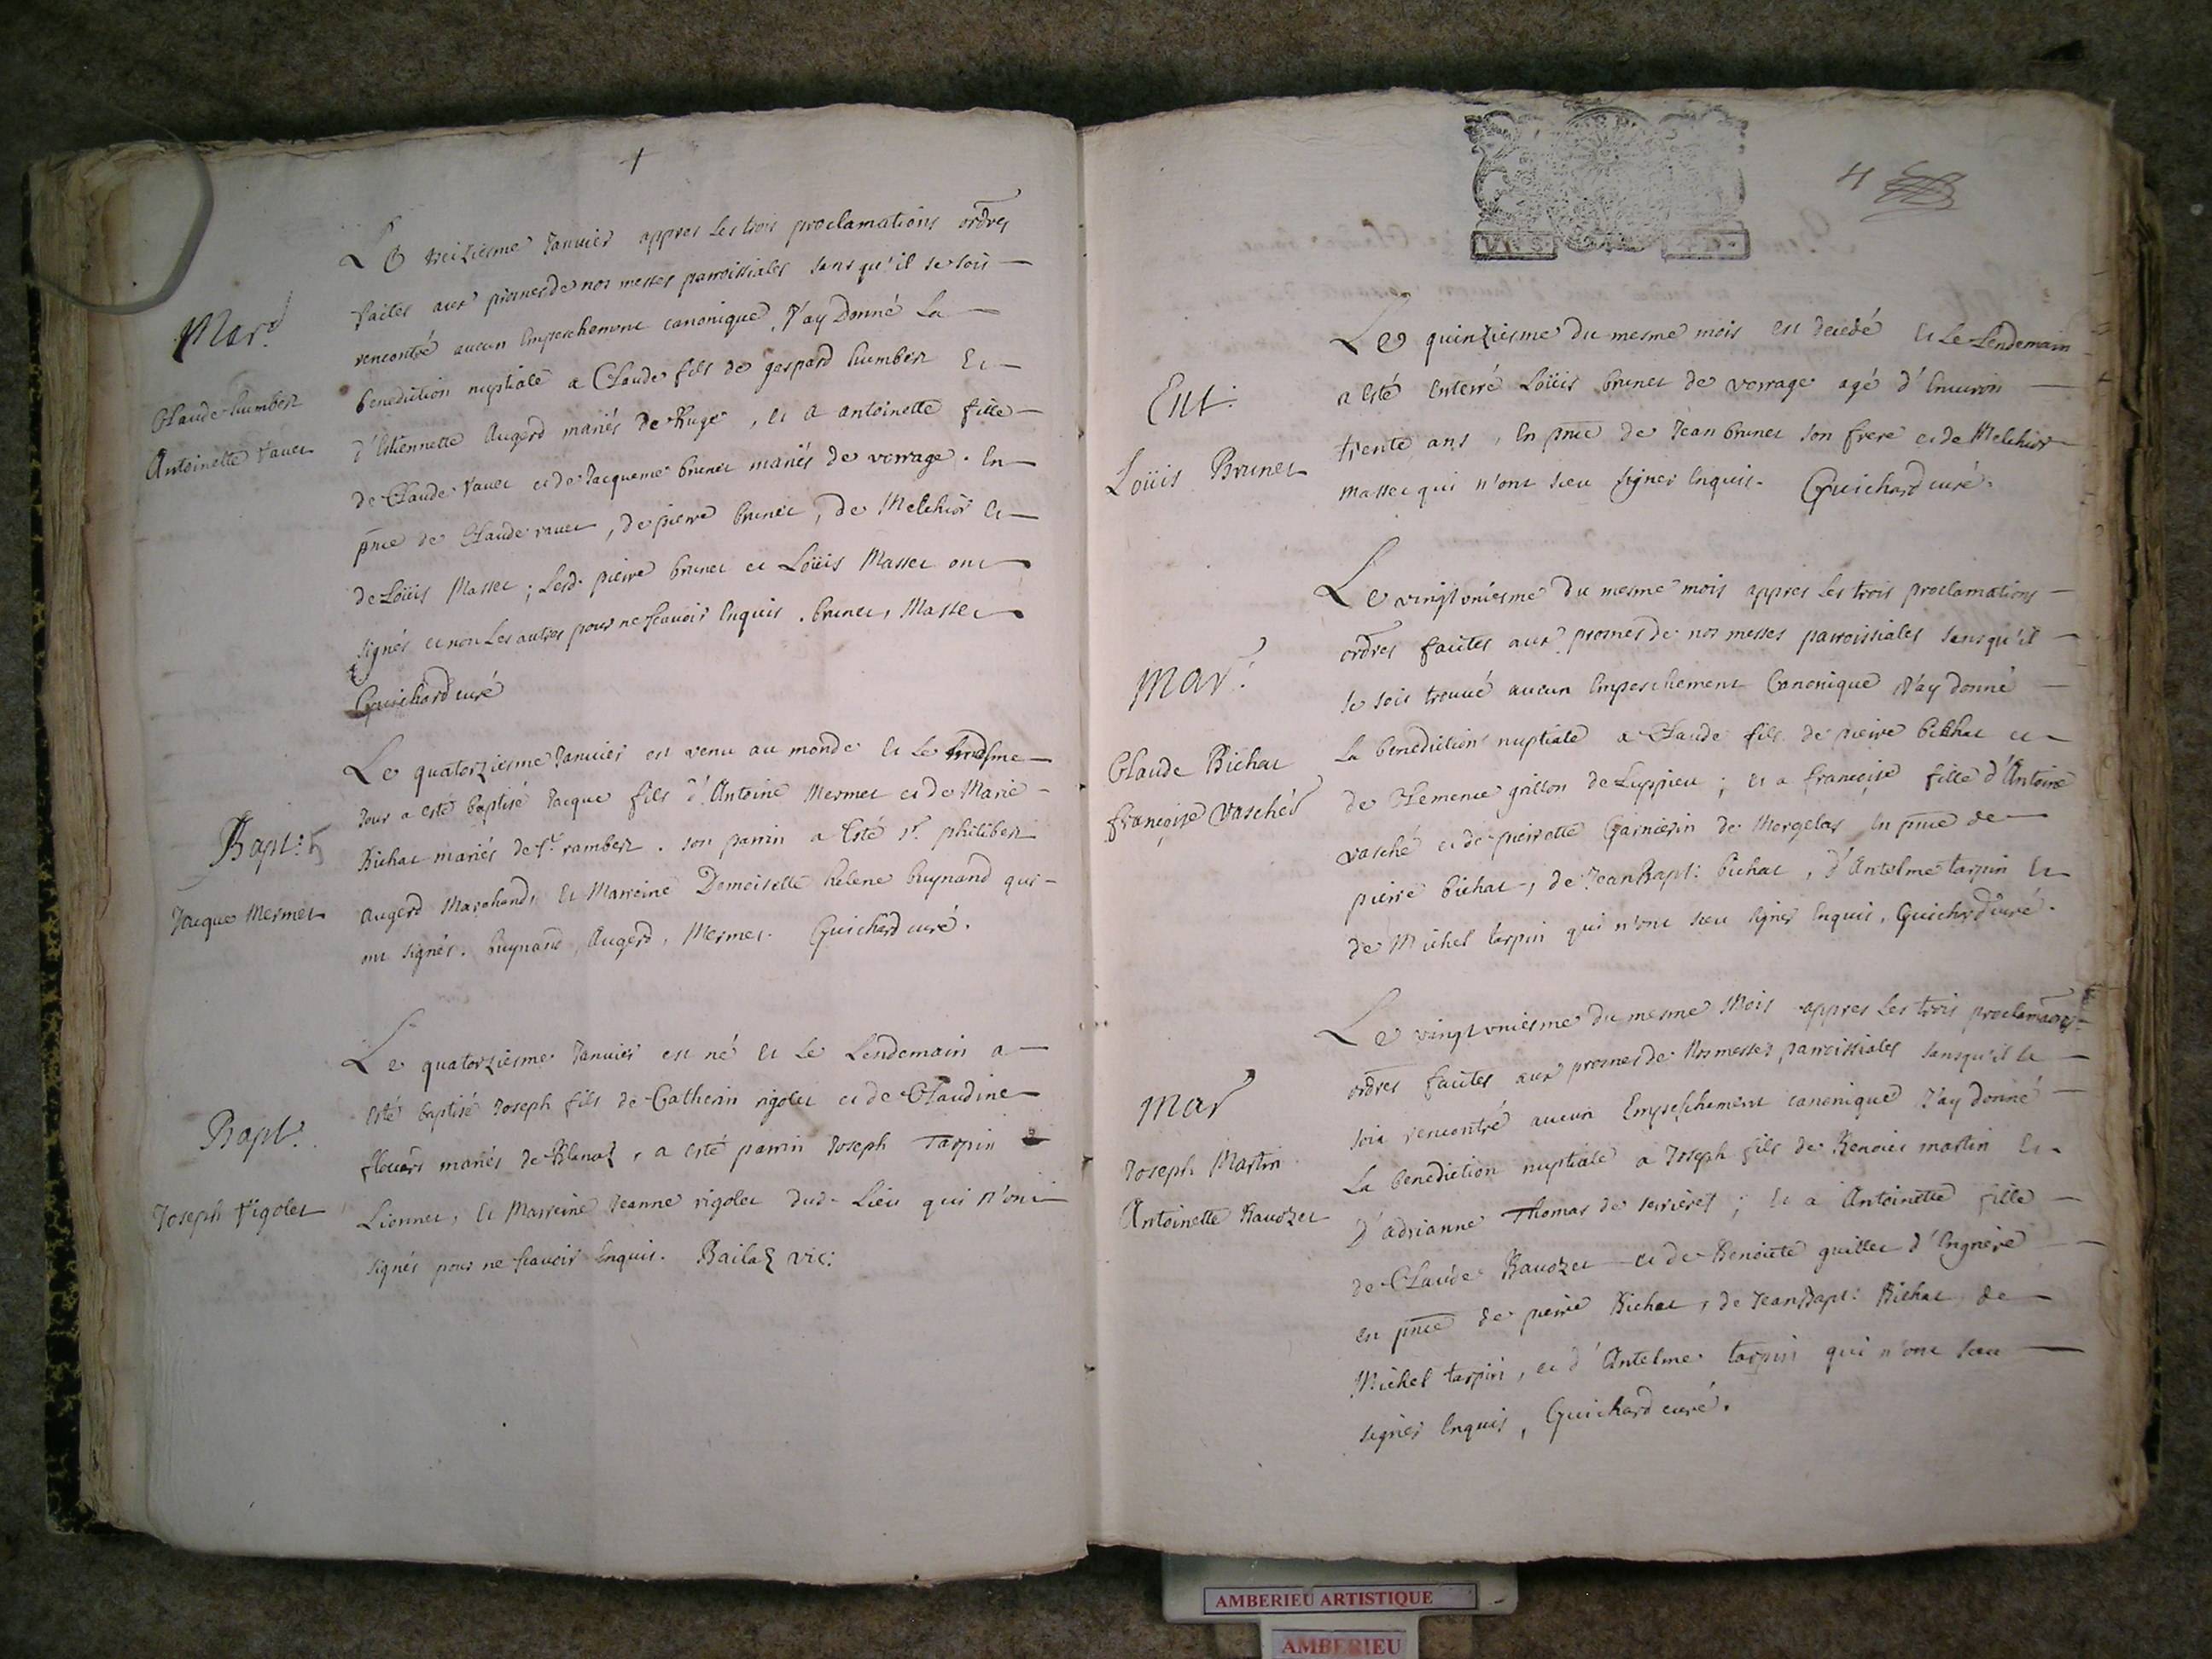 Le treiziesme Janvier appres les trois proclamations ordres
faites aux prosnes de nos messes parroissiales sans qu'il se soit
Mar.
rencontré aucun Empeschement canonique J'ay Donné La
benediction nuptiale a Claude fils de gaspard humbert Et
Claude humbert
d'Estiennette Augerd mariés de Ruge, et a antoinette fille
Antoinette Vauet
de Claude Vauet et de Jacqueme brunet mariés de verrage. En
pnce de Claude vauet, de pierre brunet, de Melchior Et
de Loüis Masset; Lesd. pierre brunet et Loüis Masset ont
signés et non Les autres pour ne scavoir Enquis. brunet, Masset
Guichard curé
Le quatorziesme Janvier est venu au monde Et Le mesme
Jour a esté baptisé Jacque fils d'Antoine Mermet et de Marie
Bapt:
Bichat mariés de St. rambert. son parrin a Esté Sr. philibert
Jacque Mermet
Augerd Marchand, Et Marreine Demoiselle helene buynand qui
ont signés. buynand, Augerd, Mermet. Guichard curé.
Le quatorziesme Janvier est né Et Le Lendemain a
Bapt.
Esté baptisé Joseph fils de Catherin rigolet et de Claudine
mariés de Blanaz, a esté parrin Joseph Tarpin
Joseph rigolet
Lionnet, Et Marreine Jeanne rigolet dud. Lieu qui n'ont
signés pour ne scavoir Enquis. Bailaz vic:
4
Le quinziesme du mesme mois est decedé Et Le Lendemain
Ent.
a Esté Enterré Loüis brunet de verrage agé d'Environ
Loüis Brunet
trente ans, En pnce de Jean brunet son frere et de Melchior
masset qui n'ont sceu signer Enquis. Guichard curé.
Le vingt vniesme du mesme mois appres Les trois proclamations
ordres faites aux prosnes de nos messes parroissiales sans qu'il
Mar.
se soit trouué aucun Empeschement Canonique J'ay donné
La benediction nuptiale a Claude fils de pierre bichat et
Claude Bichat
françoise Vasché
de Clemence grillon de Luppieu; Et a françoise fille d'Antoine
vasché et de pierrette Garnierin de Morgelas En pnce de
pierre bichat, de Jean Bapt: bichat, d'Antelme tarpin Et
de Michel tarpin qui n'ont sceu signer Enquis, Guichard curé.
Le vingt vniesme du mesme Mois appres Les trois proclamaons
ordres faites aux prosnes de Nos messes parroissiales sans qu'il se
Mar
soit rencontré aucun Empeschement canonique J'ay donné
Joseph Martin
La benediction nuptiale a Joseph fils de Benoict martin Et
Antoinette Baudzet
D'adrianne Thomas de serrieres; Et a Antoinette fille
de Claude Baudzet et de Benoiste guillet d'Ingnere
En pnce de pierre Bichat, de Jean Bapt: Bichat de
Michel tarpin, et d'Antelme tarpin qui n'ont sceu
signer Enquis, Guichard curé.
AMBERIEU ARTISTIQUE
AMBERIEU